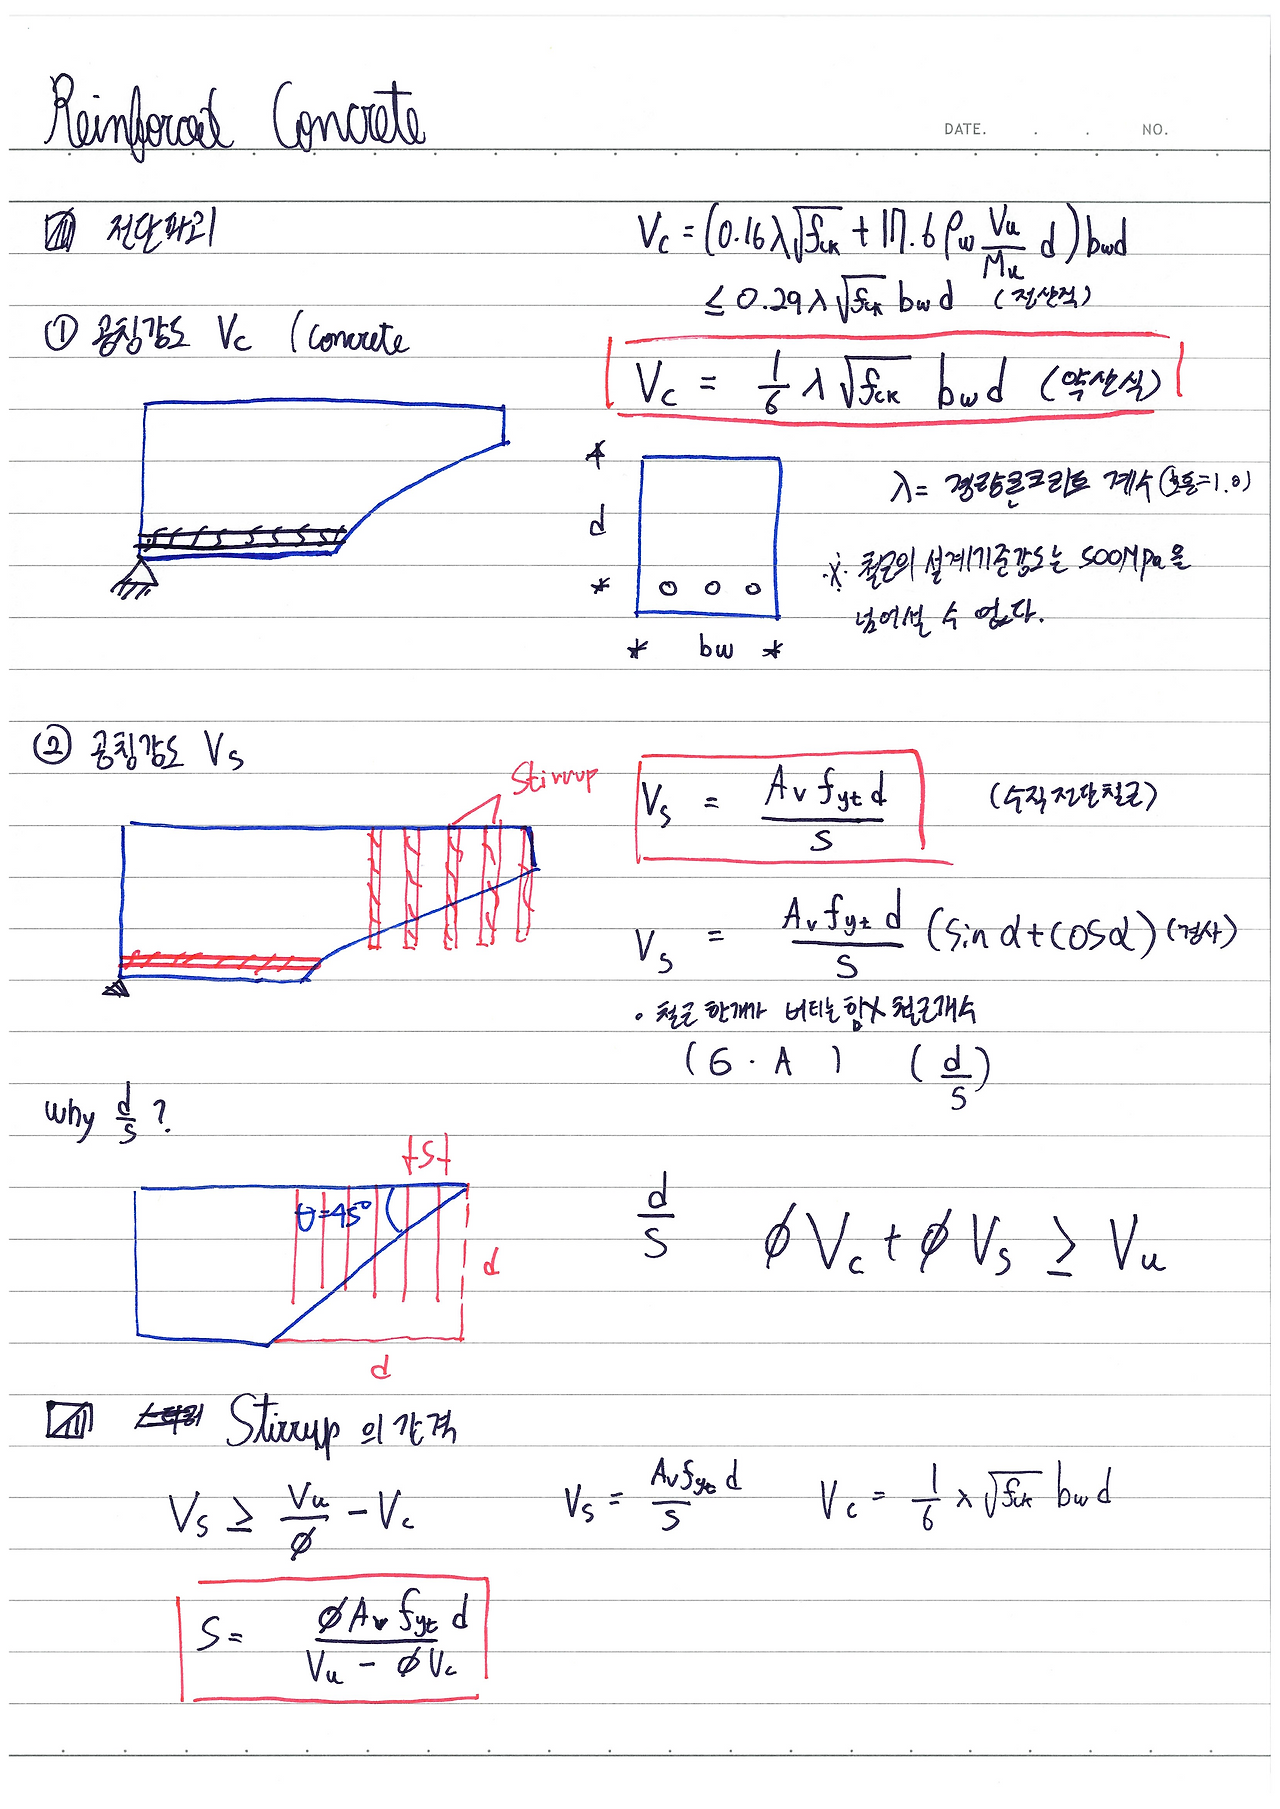 Reinforced Concrete
DATE. . . NO.
전단파괴
Vc = (0.16λ√fck + 17.6 ρw Vu/Mu d) bwd
≤ 0.29λ√fck bwd (정산식)
① 공칭강도 Vc (Concrete
Vc = 1/6 λ√fck bwd (약산식)
d
bw
λ = 경량콘크리트 계수(보통=1.0)
※ 철근의 설계기준강도는 500MPa을
넘어설 수 없다.
② 공칭강도 Vs
Stirrup
Vs = Av fyt d / s (수직전단철근)
Vs = Av fyt d / s (sinα+cosα) (경사)
• 철근 한개가 버티는힘 × 철근개수
(σ · A ) (d/s)
why d/s ?
s
θ=45°
d
d
d/s
φVc + φVs ≥ Vu
Stirrup의 간격
Vs ≥ Vu/φ - Vc
Vs = Av fyt d / s
Vc = 1/6 λ√fck bwd
S = φAv fyt d / Vu - φVc